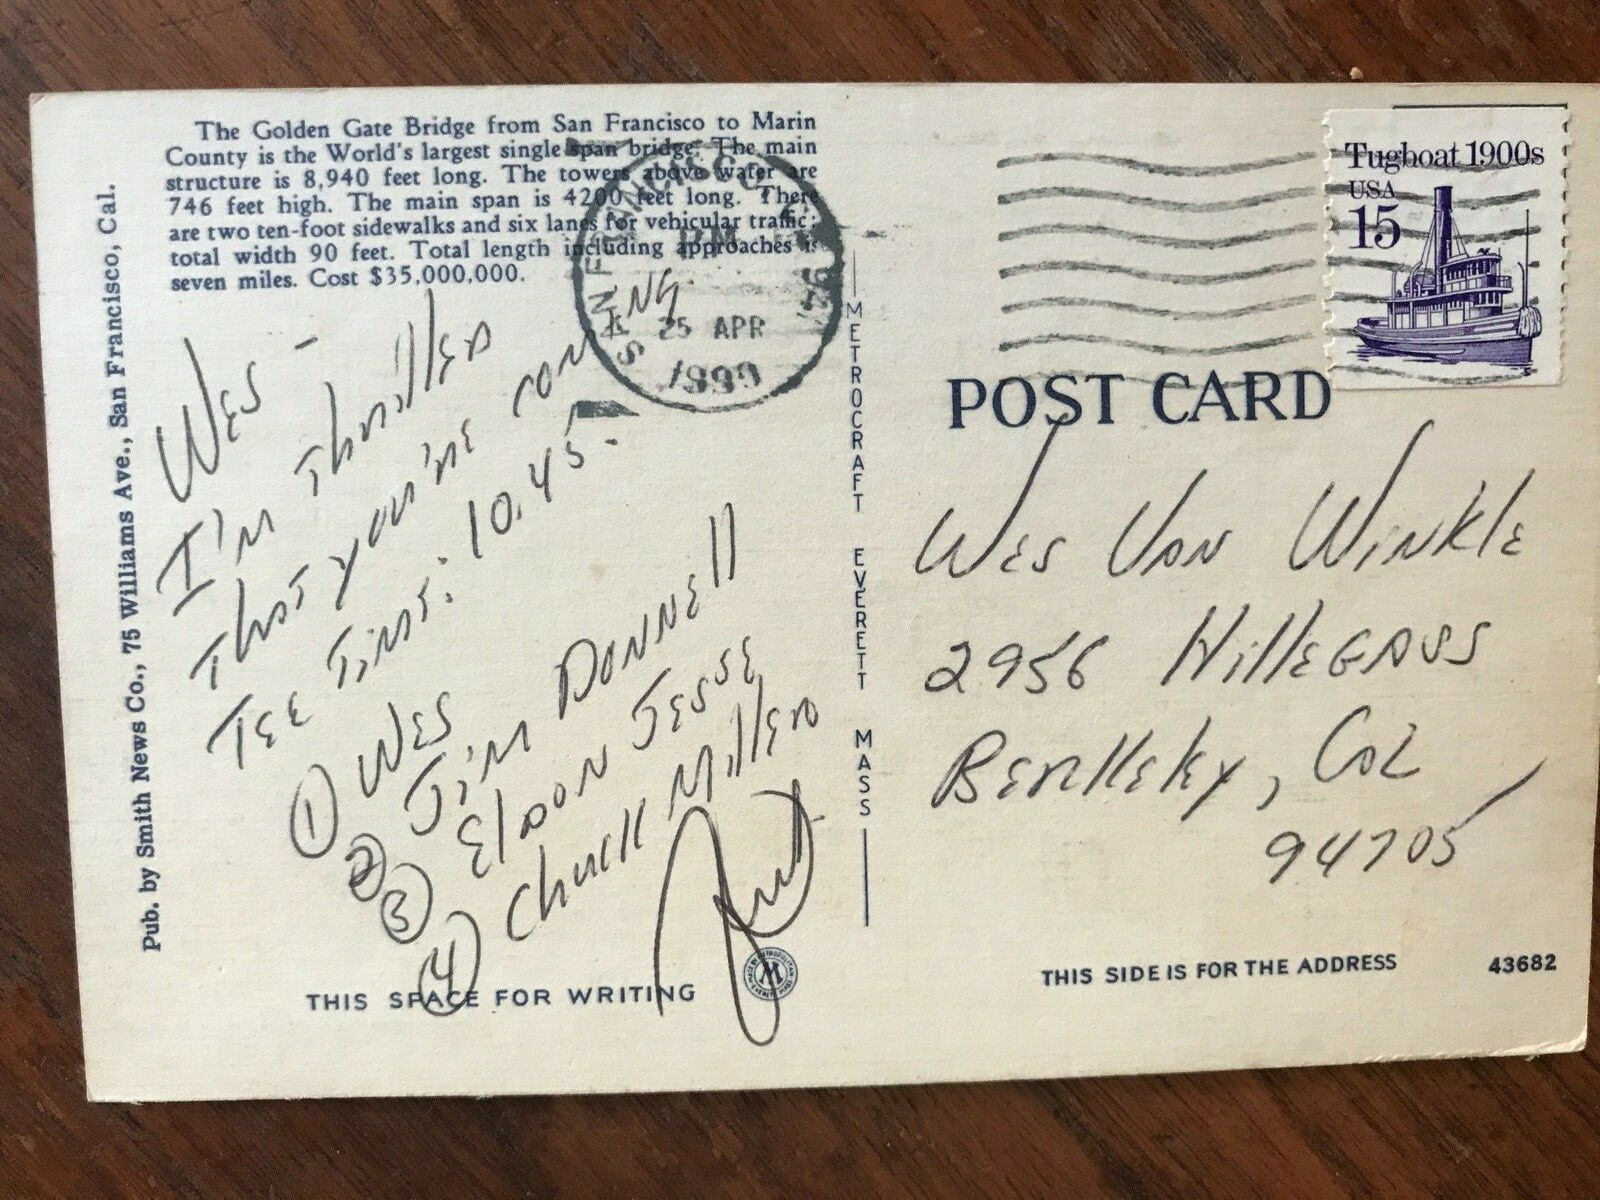 The Golden Gate Bridge from San Francisco to Marin
County is the World's largest single span bridge. The main
structure is 8,940 feet long. The towers above water are
746 feet high. The main span is 4200 feet long. There
are two ten-foot sidewalks and six lanes for vehicular traffic;
total width 90 feet. Total length including approaches is
seven miles. Cost $35,000,000.
Pub. by Smith News Co., 75 Williams Ave., San Francisco, Cal.
Wes -
I'm Thrilled
That you're coming.
Tee Time: 10.45.
1 Wes
2 Jim Donnell
3 Eldon Jesse
4 Chuck Miller
THIS SPACE FOR WRITING
M
SAN FRANCISCO
PM
25 APR
1989
METROCRAFT EVERETT MASS
Tugboat 1900s
USA
15
POST CARD
Wes Van Winkle
2956 Hillegass
Berkeley, Cal
94705
THIS SIDE IS FOR THE ADDRESS
43682